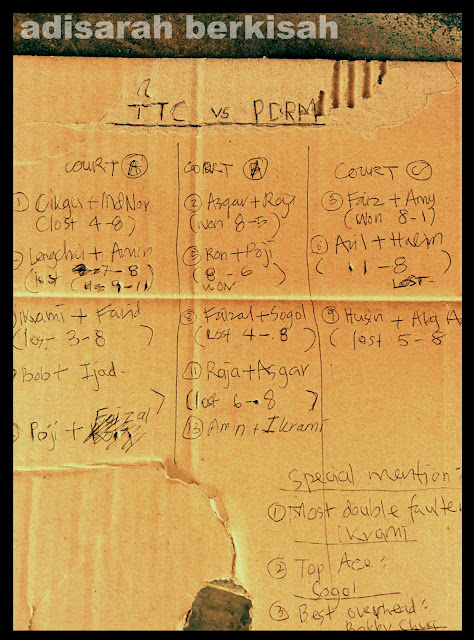 adisarah berkisah
TTC vs PDRM
COURT A
① Cikgu + MdNor
(lost 4-8)
Lengchu + Amin
(lost 7-8)
(9-11)
Ikrami + Farid
(lost 3-8)
Bob + Ijad
Poji + Faizal
COURT
② Asgar + Roy
(won 8-5)
⑤ Ron + Poji
(8-6
won
⑧ Faizal + Sogol
(lost 4-8)
⑪ Roja + Asgar
(lost 6-8)
⑬ Amn + Ikrami
COURT C
③ Faiz + Amy
(won 8-1)
⑥ + Halim
(11-8
LOST
⑨ Husin + Abg A
(lost 5-8)
Special mention:
① Most double faulter
Ikrami
② Top Ace:
Sogol
③ Best overhead:
Bobby